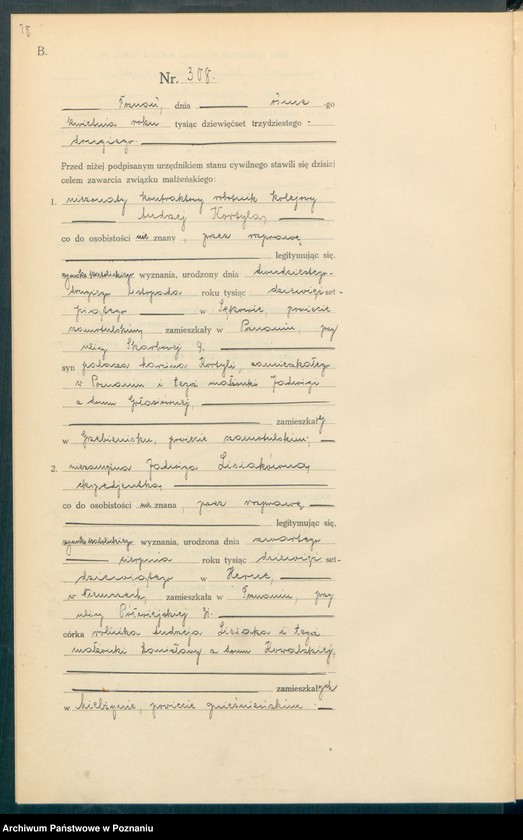 78
B.
Nr. 308.
Poznań, dnia ósmego
kwietnia roku tysiąc dziewięćset trzydziestego
drugiego.
Przed niżej podpisanym urzędnikiem stanu cywilnego stawili się dzisiaj
celem zawarcia związku małżeńskiego:
1. nieżonaty kontraktowy robotnik kolejowy
Andrzej Kortyla,
co do osobistości nie znany, przez rozprawę
legitymując się.
rzymskokatolickiego wyznania, urodzony dnia dwudziestego-
drugiego listopada roku tysiąc dziewięćset-
piątego w Sękowie, powiecie
szamotulskim zamieszkały w Poznaniu, przy
ulicy Skarbowej 9.
syn Kortyli, zamieszkałego
w Poznaniu i tegoż małżonki Jadwigi
z domu
zamieszkałej
w Grzebienisku, powiecie szamotulskim;
2. niezamężna Jadwiga Lisiakówna,
ekspedjentka,
co do osobistości nie znana, przez rozprawę
legitymując się,
rzymskokatolickiego wyznania, urodzona dnia czwartego
sierpnia roku tysiąc dziewięćset-
dziewiątego w Herne,
w Niemczech, zamieszkała w Poznaniu, przy
ulicy Półwiejskiej 31.
córka rolnika Andrzeja Lisiaka i tegoż
małżonki Konstancji z domu Kowalskiej,
zamieszkałych
w powiecie gnieźnieńskim.
Archiwum Państwowe w Poznaniu